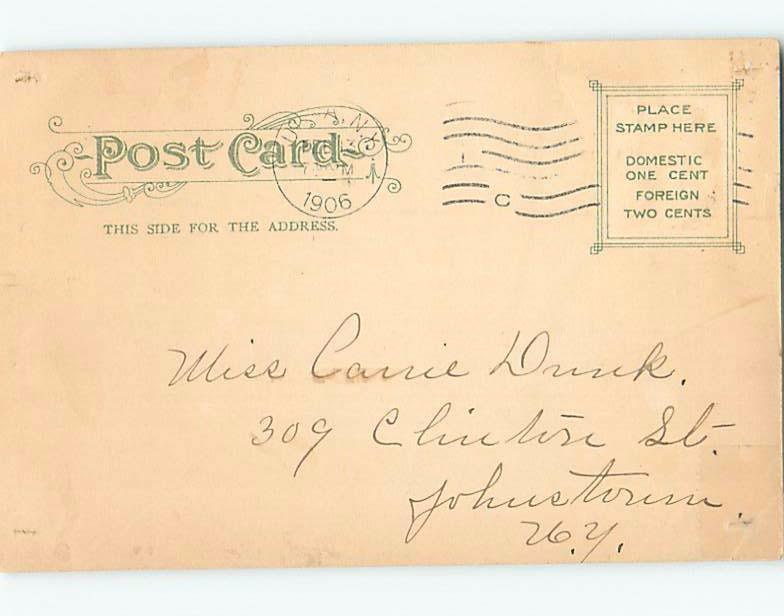 Post Card
THIS SIDE FOR THE ADDRESS.
1906
C
PLACE
STAMP HERE
DOMESTIC
ONE CENT
FOREIGN
TWO CENTS
Miss Carrie Dunk.
309 Clinton St.
Johnstown.
N.Y.